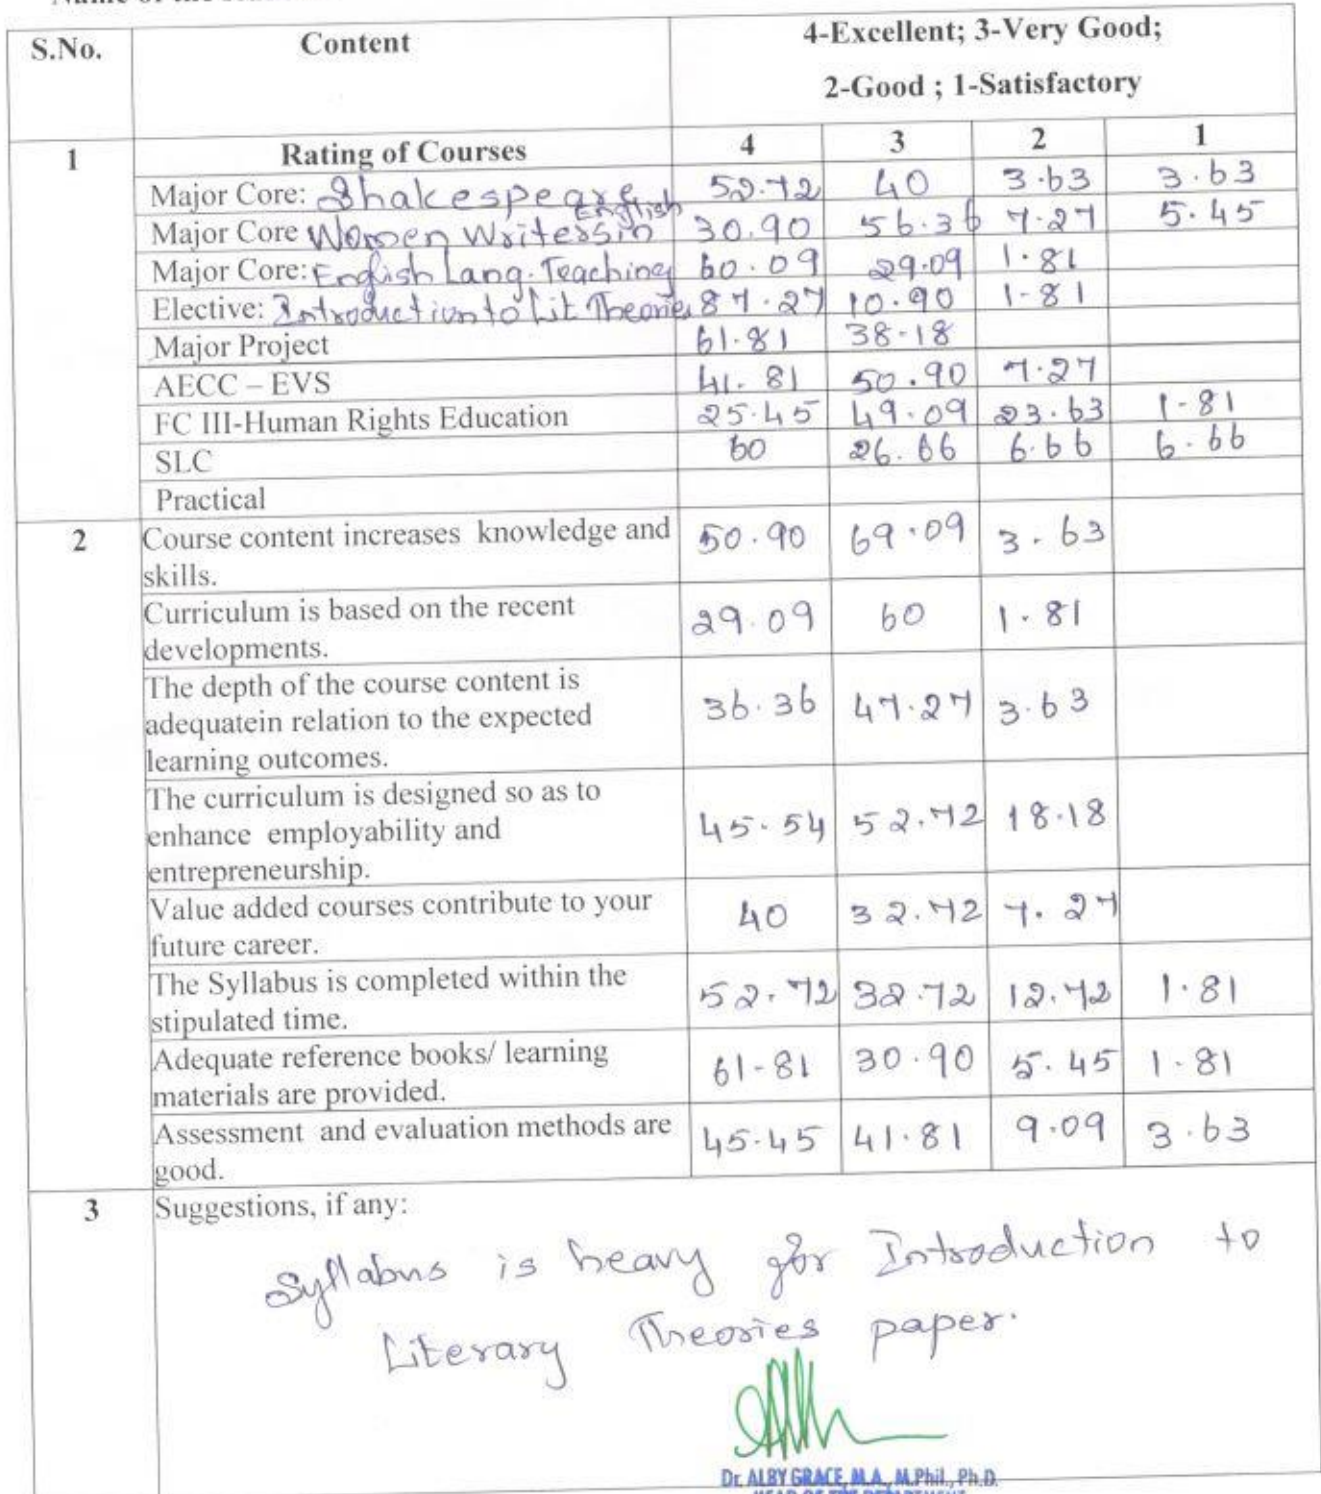 S.No. Content 4-Excellent; 3-Very Good;
2-Good ; 1-Satisfactory
1 Rating of Courses 4 3 2 1
Major Core: Shakespeare 52.72 40 3.63 3.63
English
Major Core Women Writers in 30.90 56.36 7.27 5.45
Major Core: English Lang. Teaching 60.09 29.09 1.81
Elective: Introduction to Lit Theories 87.27 10.90 1-81
Major Project 61.81 38-18
AECC – EVS 41.81 50.90 7.27
FC III-Human Rights Education 25.45 49.09 23.63 1-81
SLC 60 26.66 6.66 6.66
Practical
2 Course content increases knowledge and 50.90 69.09 3.63
skills.
Curriculum is based on the recent 29.09 60 1.81
developments.
The depth of the course content is
adequatein relation to the expected 36.36 47.27 3.63
learning outcomes.
The curriculum is designed so as to
enhance employability and 45.54 52.72 18.18
entrepreneurship.
Value added courses contribute to your 40 32.72 7.27
future career.
The Syllabus is completed within the 52.72 32.72 12.72 1.81
stipulated time.
Adequate reference books/ learning 61-81 30.90 5.45 1.81
materials are provided.
Assessment and evaluation methods are 45.45 41.81 9.09 3.63
good.
3 Suggestions, if any:
Syllabus is heavy for Introduction to
Literary Theories paper.
Dr. ALBY GRACE, M.A., M.Phil., Ph.D.